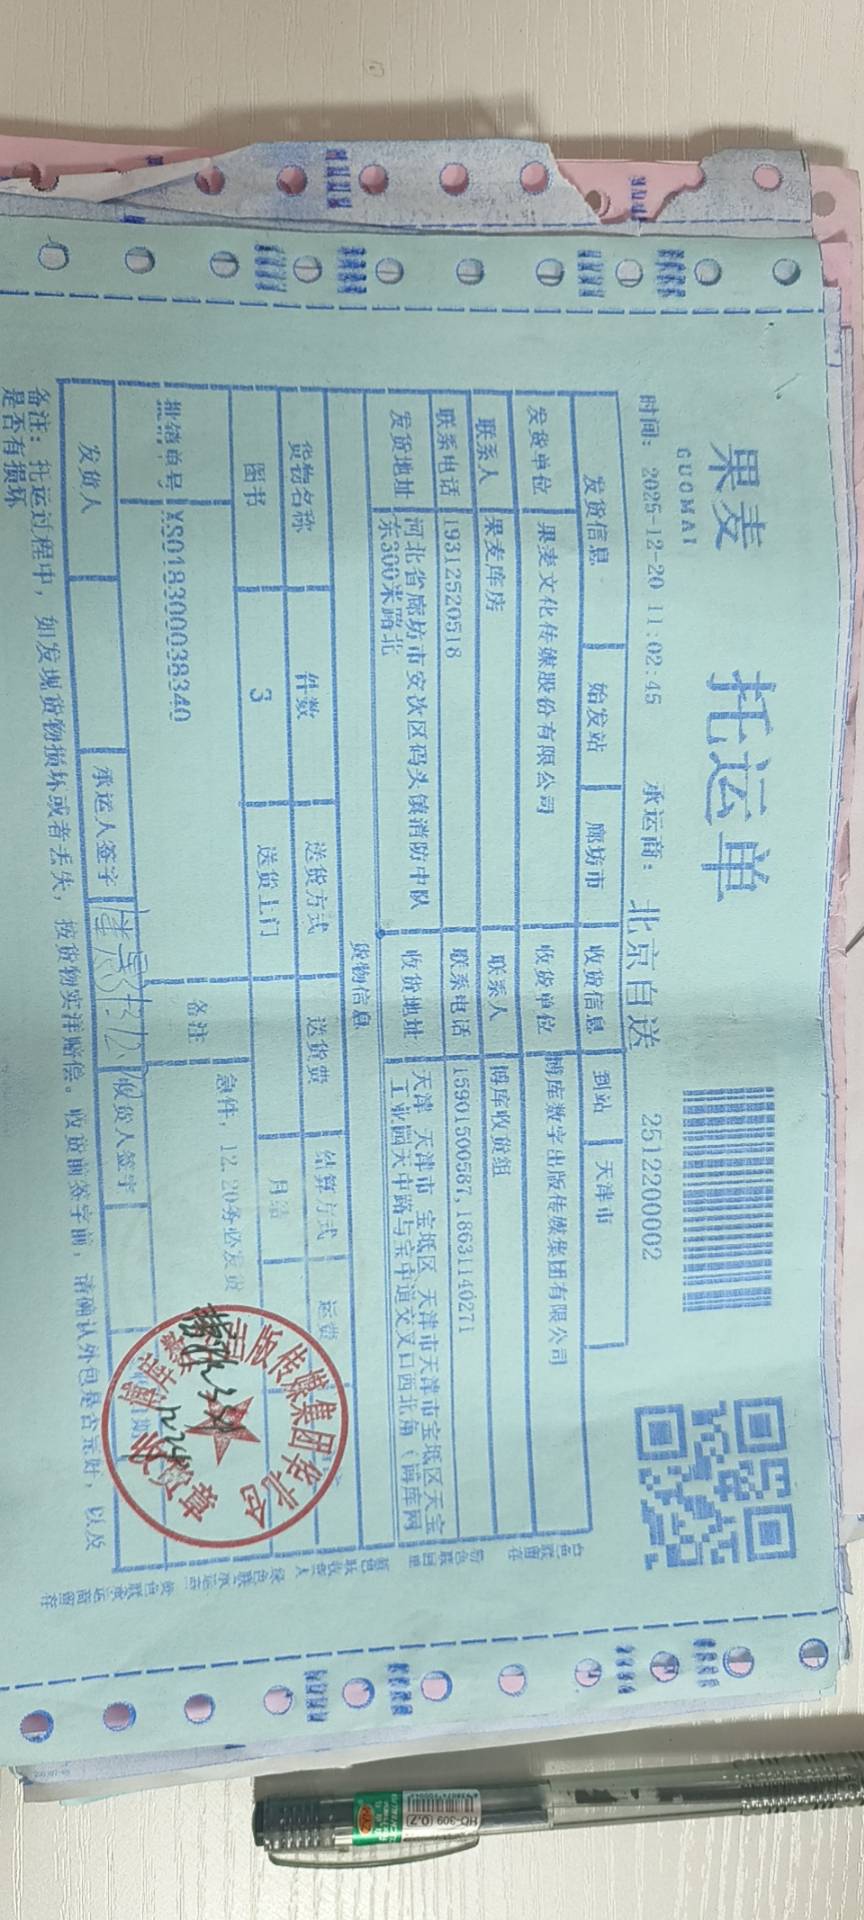 果麦
GUOMAI
托运单
时间：2025-12-20 11:02:45 承运商：北京自送 2512200002
发货信息 始发站 廊坊市 收货信息 到站 天津市
发货单位 果麦文化传媒股份有限公司 收货单位 博库数字出版传媒集团有限公司
联系人 果麦库房 联系人 博库收货组
联系电话 19312520518 联系电话 15901500587,18631140271
发货地址 河北省廊坊市安次区码头镇消防中队东300米路北 收货地址 天津 天津市 宝坻区 天津市天津市宝坻区天宝工业园天中路与宝中道交叉口西北角（博库网
货物信息
货物名称 件数 送货方式 送货费 结算方式 运费
图书 3 送货上门 月结
批销单号 XS018300038340 备注 急件，12.20务必发货
发货人 承运人签字 收货人签字
备注：托运过程中，如发现货物损坏或者丢失，按货物实洋赔偿。收货前签字前，请确认外包是否完好，以及
是否有损坏
出版传媒集团华北仓
收货章
HO-309 (0.7)